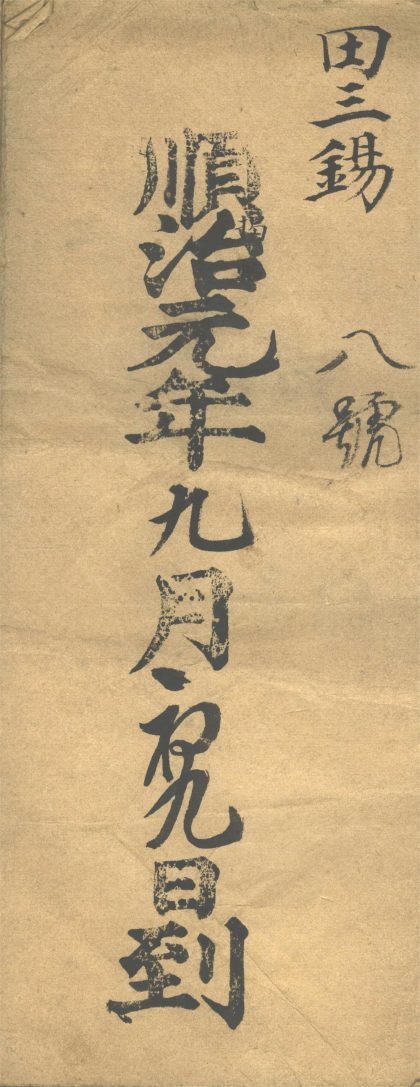 田三錫 八號
揭
順治元年九月初九日到